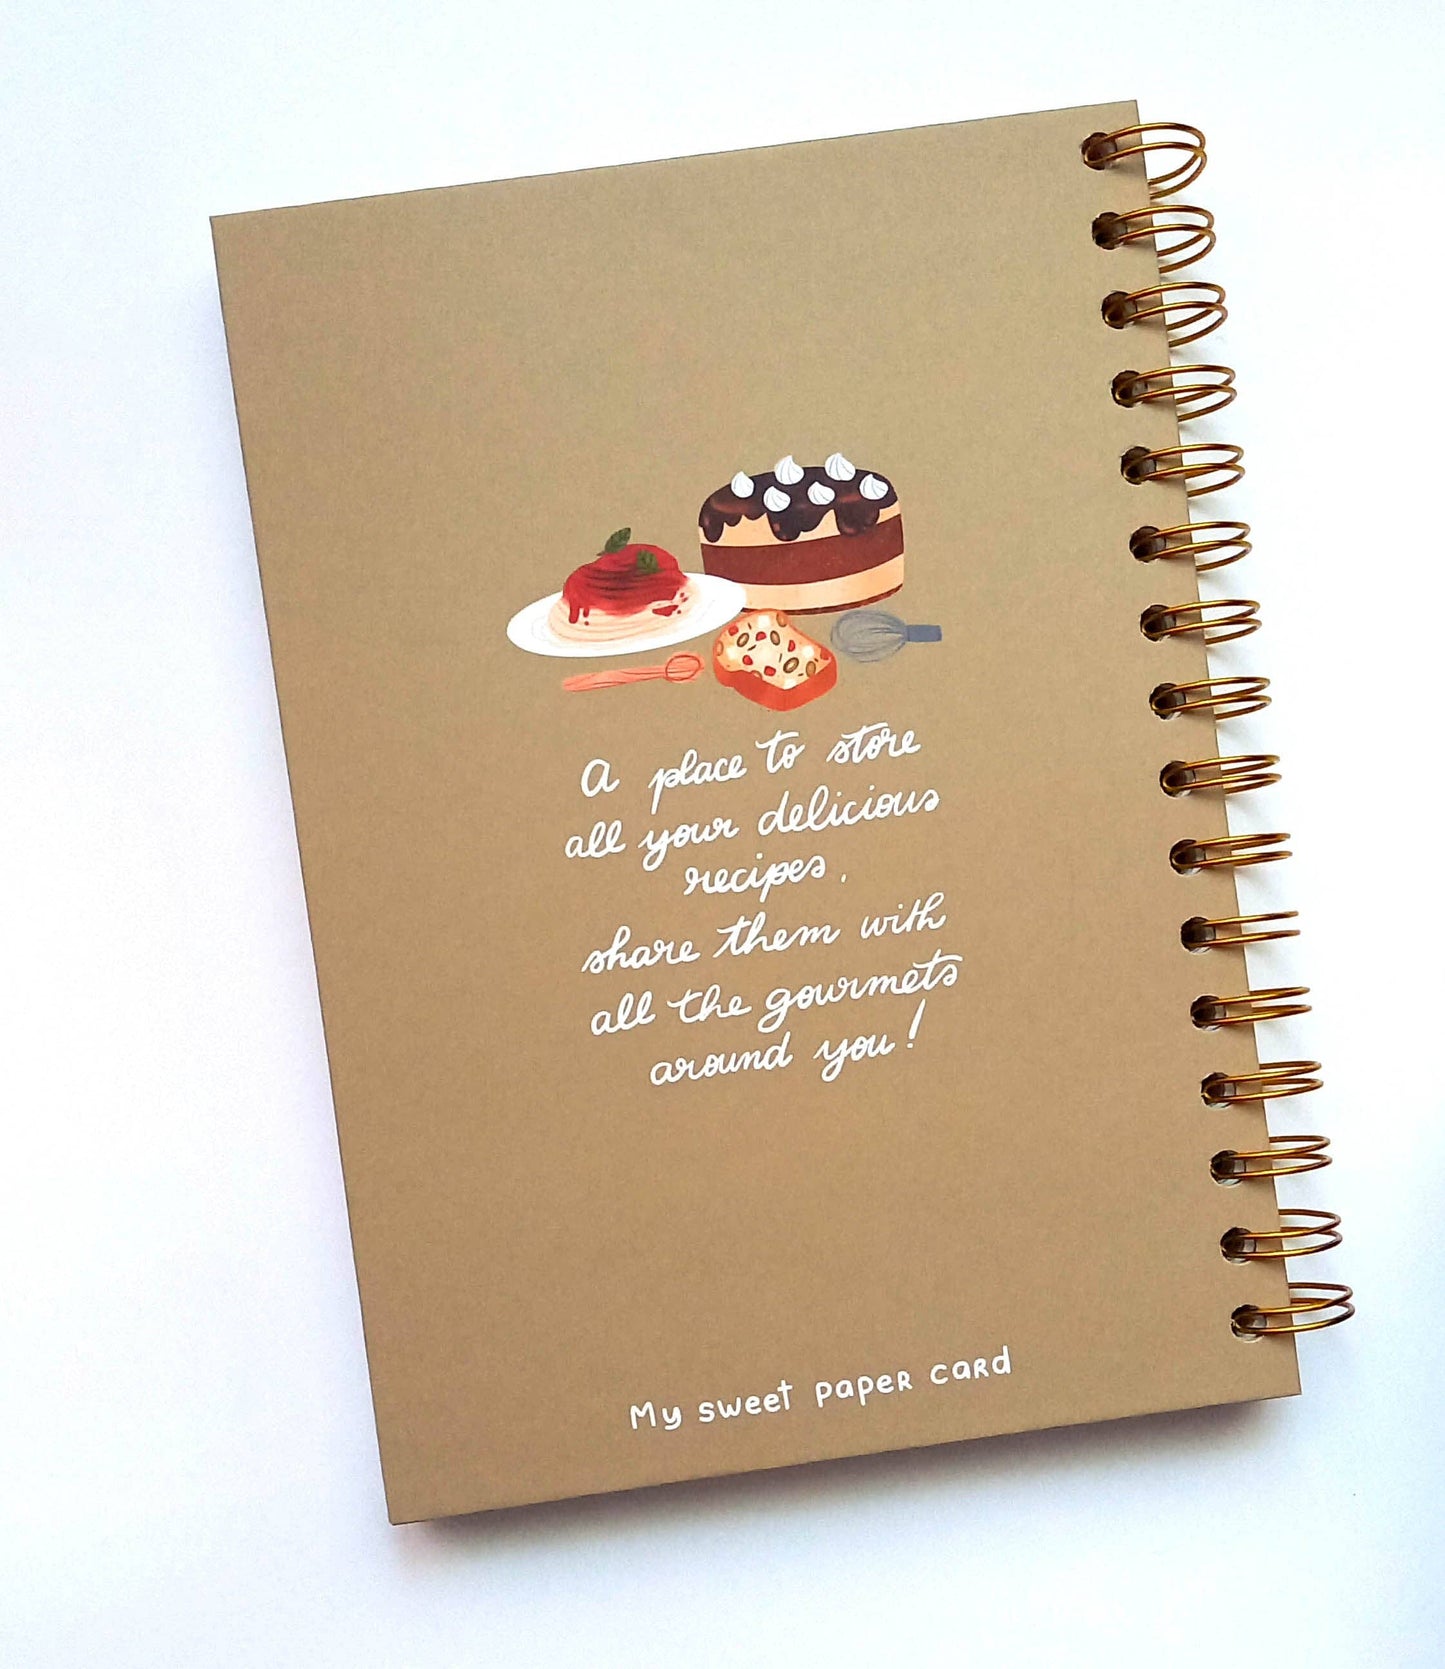 A place to store
all your delicious
recipes.
share them with
all the gourmets
around you!
My sweet paper card